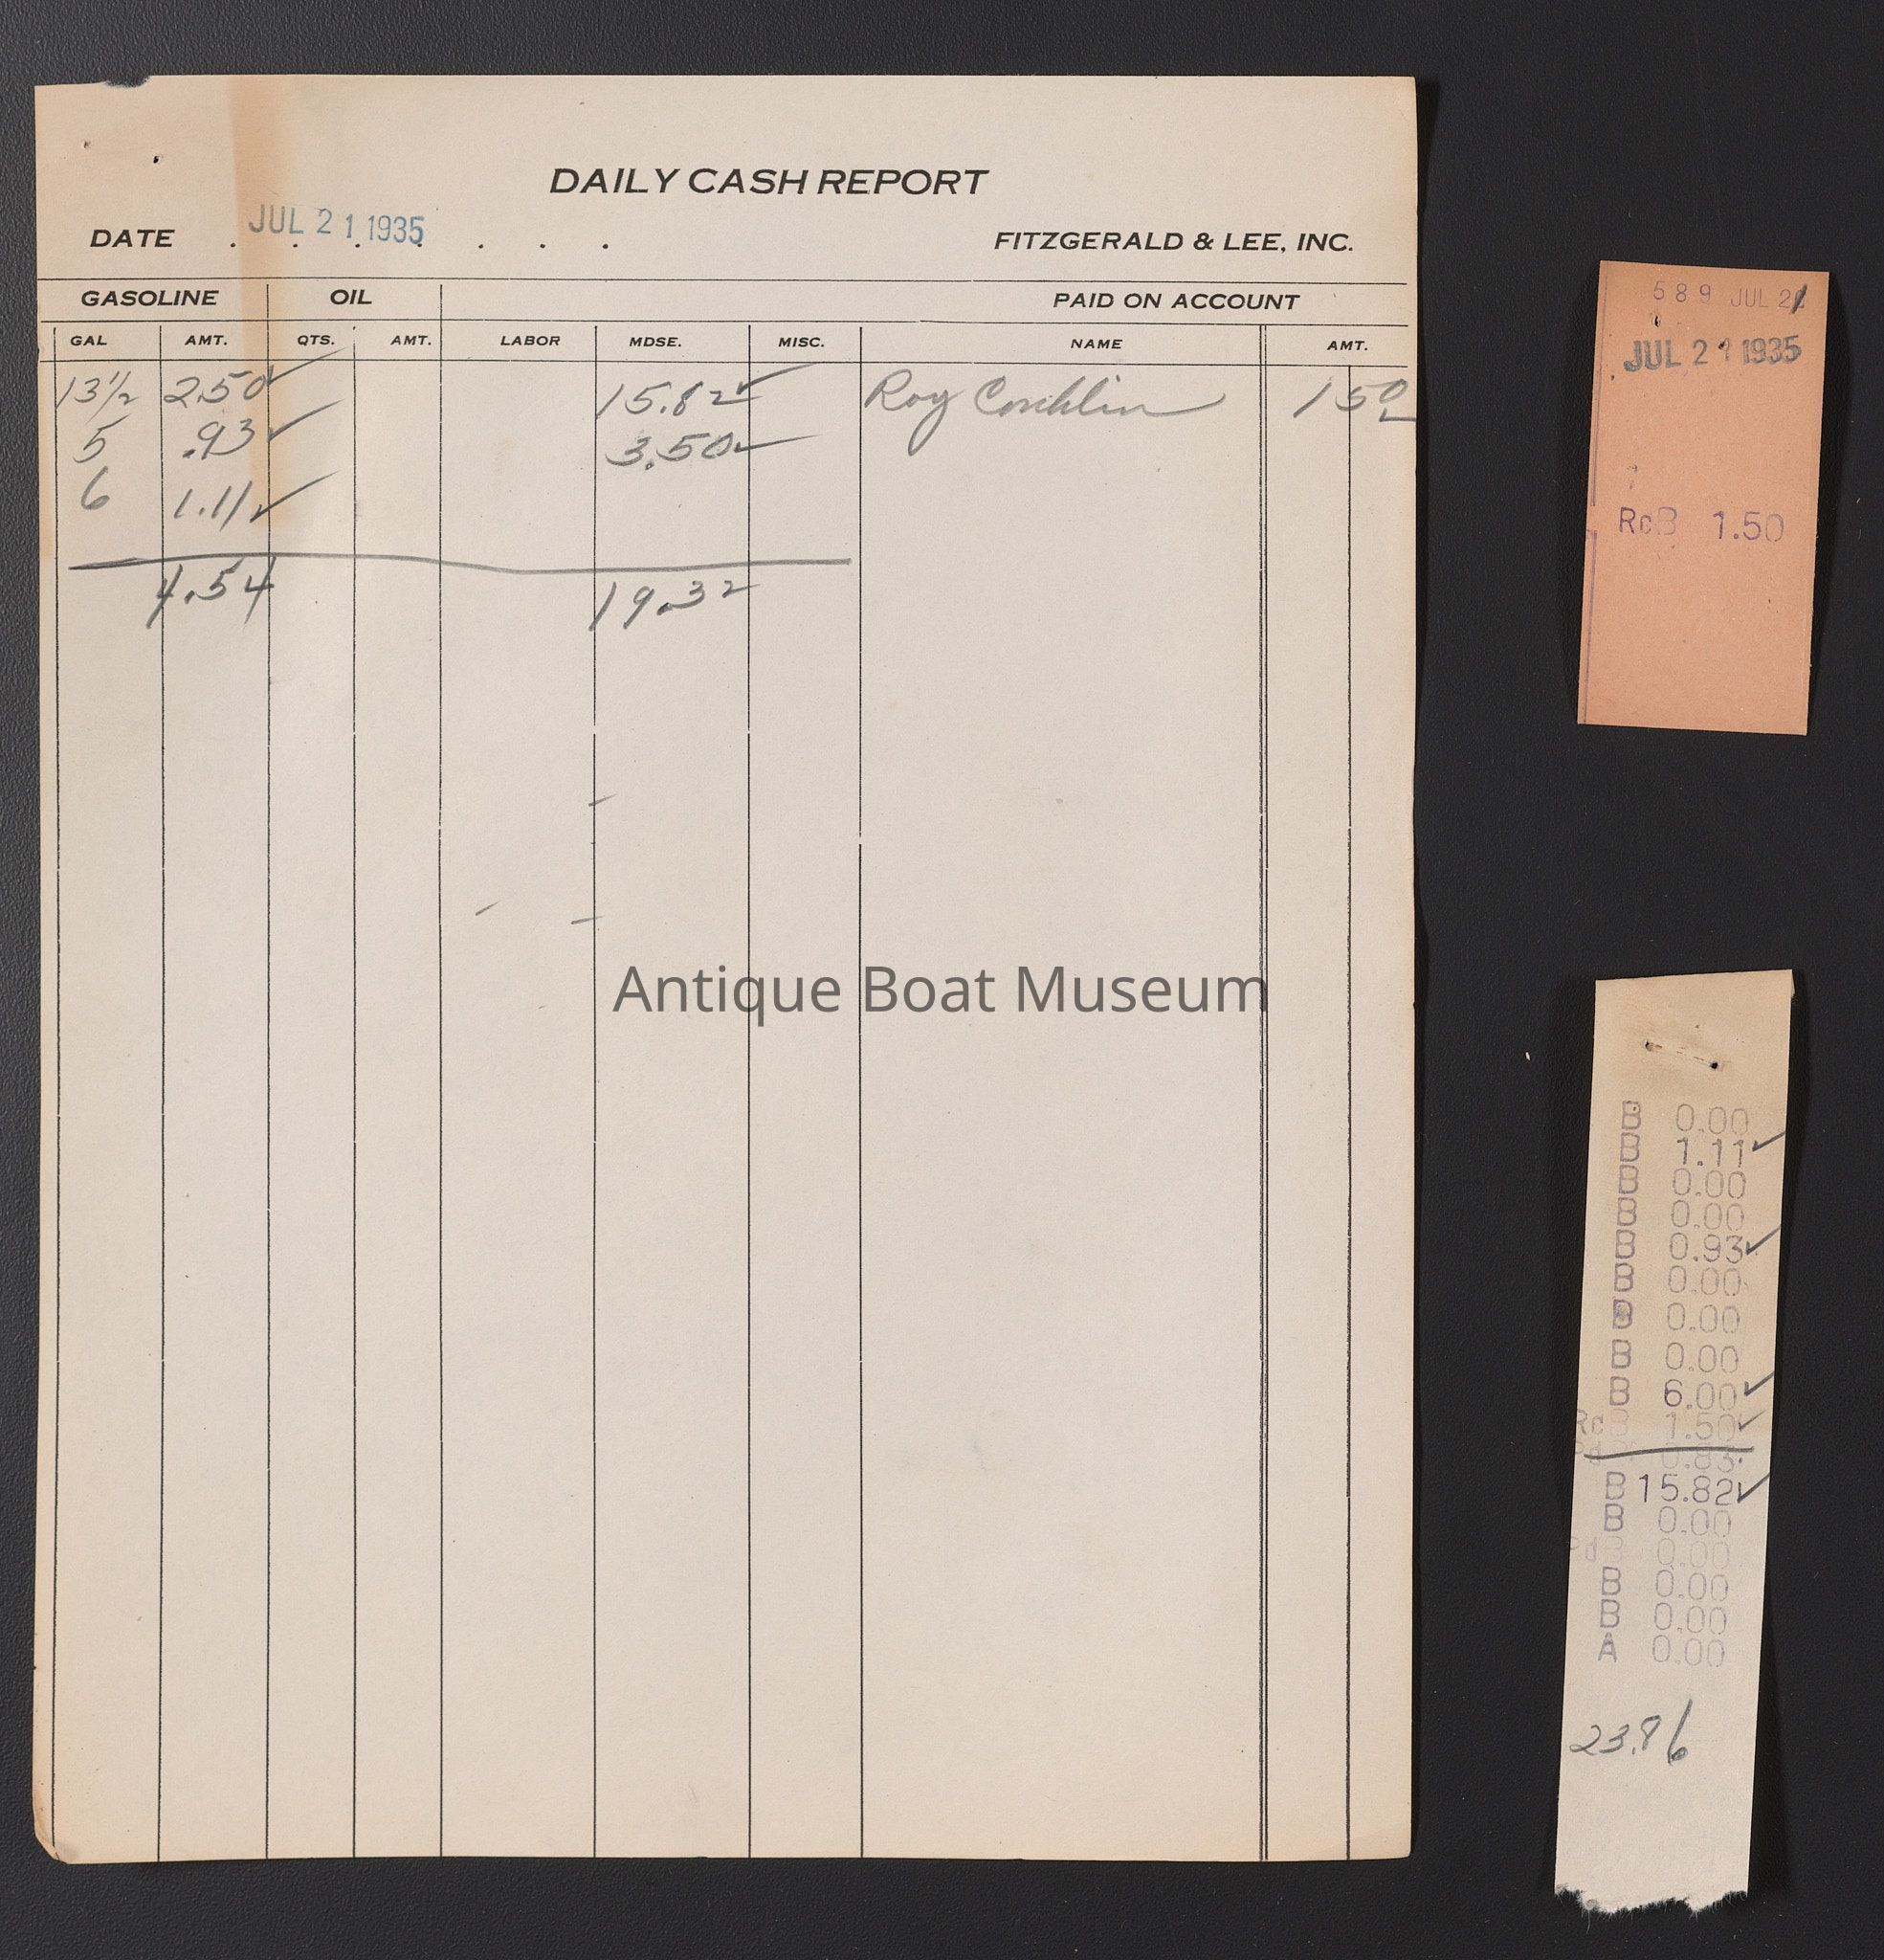 DAILY CASH REPORT
DATE . . . . . . . JUL 21 1935
FITZGERALD & LEE, INC.
GASOLINE OIL PAID ON ACCOUNT
GAL AMT. QTS. AMT. LABOR MDSE. MISC. NAME AMT.
13½ 2.50 15.82 Roy Conklin 1 50
5 .93 3.50
6 1.11
4.54 19.32
Antique Boat Museum
589 JUL 21
JUL 21 1935
RcB 1.50
B 0.00
B 1.11
B 0.00
B 0.00
B 0.93
B 0.00
B 0.00
B 0.00
B 6.00
Rc 1.50
0.83
B 15.82
B 0.00
Pd 0.00
B 0.00
B 0.00
A 0.00
23.86